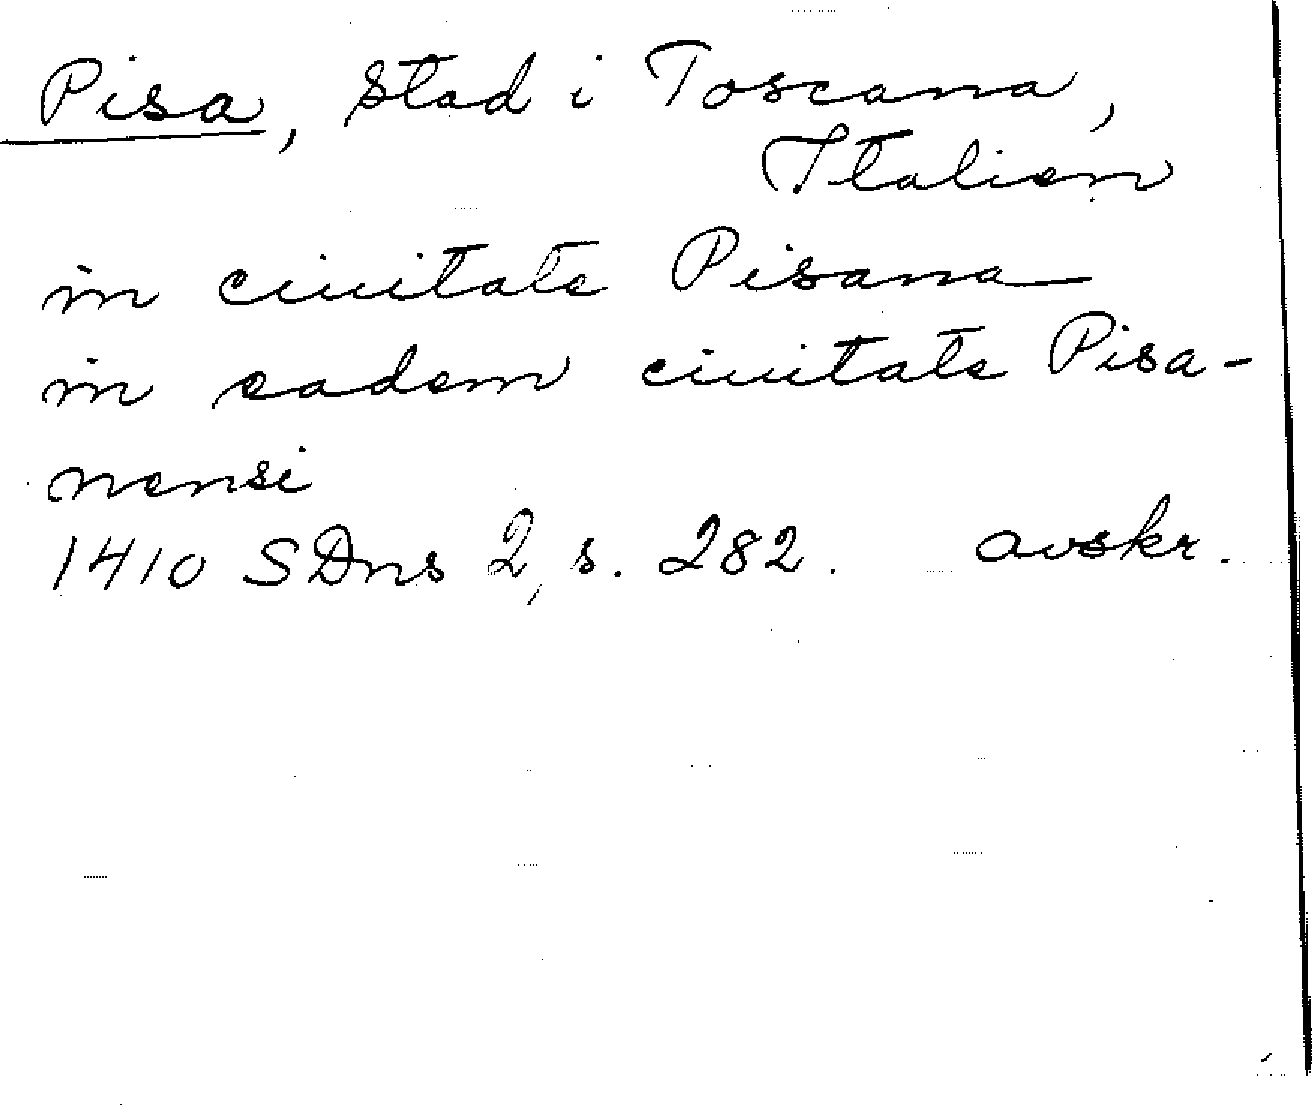 Pisa, stad i Toscana,
Italien
in ciuitate Pisana
in eadem ciuitate Pisa-
nensi
1410 SDns 2, s. 282. avskr.